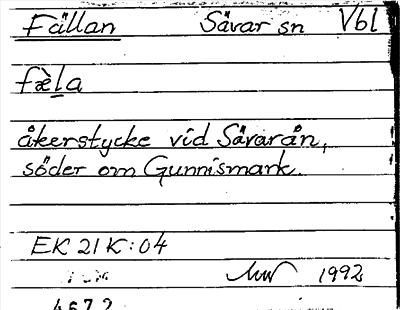 Fällan Sävar sn Vbl
fæ̀la
åkerstycke vid Sävarån,
söder om Gunnismark.
EK 21 K:04
1992
4672